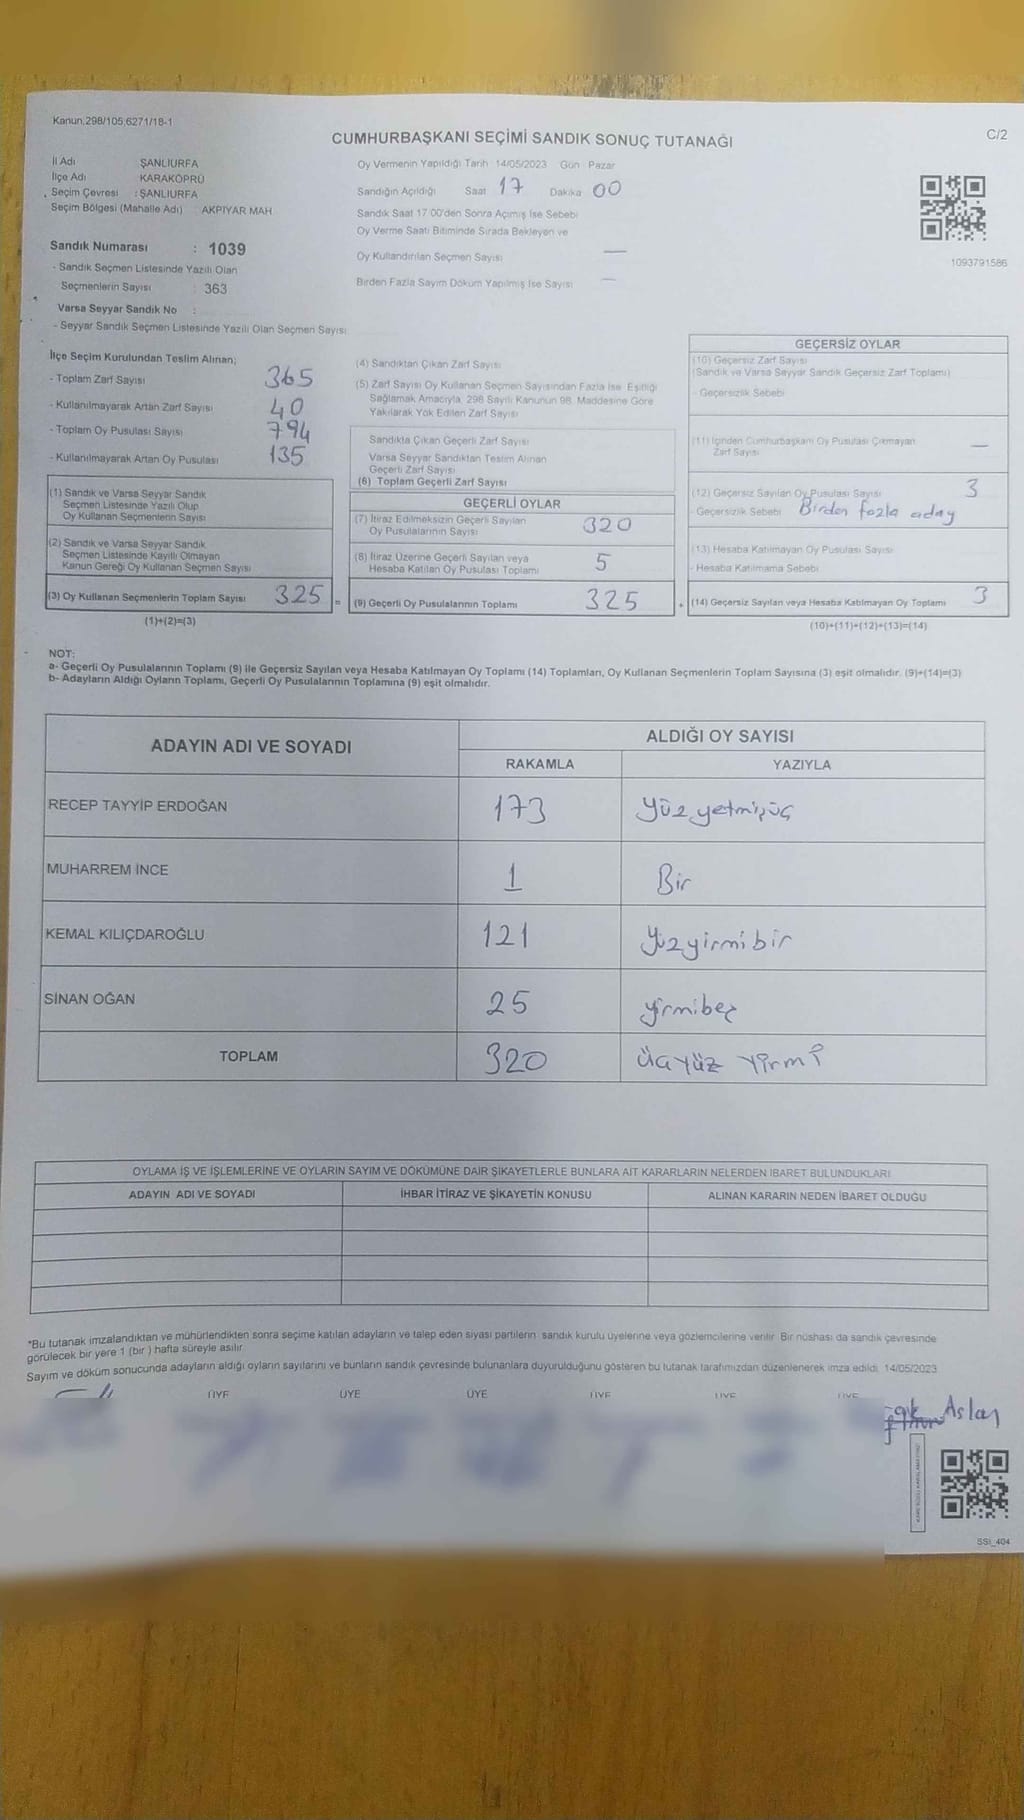 Kanun,298/105,6271/18-1
CUMHURBAŞKANI SEÇİMİ SANDIK SONUÇ TUTANAĞI
C/2
İl Adı ŞANLIURFA
İlçe Adı KARAKÖPRÜ
Seçim Çevresi : ŞANLIURFA
Seçim Bölgesi (Mahalle Adı) AKPIYAR MAH
Oy Vermenin Yapıldığı Tarih 14/05/2023 Gün : Pazar
Sandığın Açıldığı Saat 17 Dakika 00
Sandık Saat 17:00'den Sonra Açımış İse Sebebi
Oy Verme Saati Bitiminde Sırada Bekleyen ve
Oy Kullandırılan Seçmen Sayısı —
Birden Fazla Sayım Döküm Yapılmış İse Sayısı —
1093791586
Sandık Numarası : 1039
- Sandık Seçmen Listesinde Yazılı Olan
Seçmenlerin Sayısı : 363
Varsa Seyyar Sandık No :
- Seyyar Sandık Seçmen Listesinde Yazılı Olan Seçmen Sayısı
İlçe Seçim Kurulundan Teslim Alınan;
- Toplam Zarf Sayısı 365
- Kullanılmayarak Artan Zarf Sayısı 40
- Toplam Oy Pusulası Sayısı 794
- Kullanılmayarak Artan Oy Pusulası 135
(1) Sandık ve Varsa Seyyar Sandık
Seçmen Listesinde Yazılı Olup
Oy Kullanan Seçmenlerin Sayısı
(2) Sandık ve Varsa Seyyar Sandık
Seçmen Listesinde Kayıtlı Olmayan
Kanun Gereği Oy Kullanan Seçmen Sayısı
(3) Oy Kullanan Seçmenlerin Toplam Sayısı 325 =
(1)+(2)=(3)
(4) Sandıktan Çıkan Zarf Sayısı
(5) Zarf Sayısı Oy Kullanan Seçmen Sayısından Fazla İse, Eşitliği
Sağlamak Amacıyla, 298 Sayılı Kanunun 98. Maddesine Göre
Yakılarak Yok Edilen Zarf Sayısı
Sandıkta Çıkan Geçerli Zarf Sayısı
Varsa Seyyar Sandıktan Teslim Alınan
Geçerli Zarf Sayısı
(6) Toplam Geçerli Zarf Sayısı
GEÇERLİ OYLAR
(7) İtiraz Edilmeksizin Geçerli Sayılan
Oy Pusulalarının Sayısı 320
(8) İtiraz Üzerine Geçerli Sayılan veya
Hesaba Katılan Oy Pusulası Toplamı 5
(9) Geçerli Oy Pusulalarının Toplamı 325 +
GEÇERSİZ OYLAR
(10) Geçersiz Zarf Sayısı
(Sandık ve Varsa Seyyar Sandık Geçersiz Zarf Toplamı)
- Geçersizlik Sebebi
(11) İçinden Cumhurbaşkanı Oy Pusulası Çıkmayan
Zarf Sayısı —
(12) Geçersiz Sayılan Oy Pusulası Sayısı 3
- Geçersizlik Sebebi Birden fazla aday
(13) Hesaba Katılmayan Oy Pusulası Sayısı
- Hesaba Katılmama Sebebi
(14) Geçersiz Sayılan veya Hesaba Katılmayan Oy Toplamı 3
(10)+(11)+(12)+(13)=(14)
NOT:
a- Geçerli Oy Pusulalarının Toplamı (9) ile Geçersiz Sayılan veya Hesaba Katılmayan Oy Toplamı (14) Toplamları, Oy Kullanan Seçmenlerin Toplam Sayısına (3) eşit olmalıdır. (9)+(14)=(3)
b- Adayların Aldığı Oyların Toplamı, Geçerli Oy Pusulalarının Toplamına (9) eşit olmalıdır.
ADAYIN ADI VE SOYADI
ALDIĞI OY SAYISI
RAKAMLA YAZIYLA
RECEP TAYYİP ERDOĞAN 173 yüz yetmişüç
MUHARREM İNCE 1 Bir
KEMAL KILIÇDAROĞLU 121 yüzyirmibir
SİNAN OĞAN 25 yirmibeş
TOPLAM 320 üçyüz yirmi
OYLAMA İŞ VE İŞLEMLERİNE VE OYLARIN SAYIM VE DÖKÜMÜNE DAİR ŞİKAYETLERLE BUNLARA AİT KARARLARIN NELERDEN İBARET BULUNDUKLARI
ADAYIN ADI VE SOYADI İHBAR İTİRAZ VE ŞİKAYETİN KONUSU ALINAN KARARIN NEDEN İBARET OLDUĞU
*Bu tutanak imzalandıktan ve mühürlendikten sonra seçime katılan adayların ve talep eden siyasi partilerin sandık kurulu üyelerine veya gözlemcilerine verilir. Bir nüshası da sandık çevresinde
görülecek bir yere 1 (bir ) hafta süreyle asılır.
Sayım ve döküm sonucunda adayların aldığı oyların sayılarını ve bunların sandık çevresinde bulunanlara duyurulduğunu gösteren bu tutanak tarafımızdan düzenlenerek imza edildi. 14/05/2023
ÜYE ÜYE ÜYE ÜYE ÜYE ÜYE
Aslan
SSİ_404